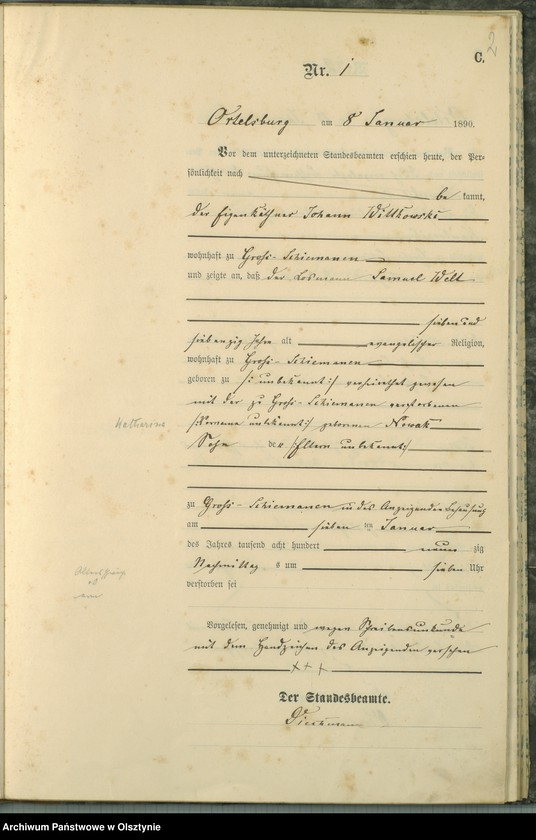 C. 2
Nr. 1
Ortelsburg am 8 Januar 1890.
Vor dem unterzeichneten Standesbeamten erschien heute, der Per-
sönlichkeit nach
be kannt,
der Eigenkäthner Johann Wittkowski
wohnhaft zu Groß-Schiemanen
und zeigte an, daß der Losmann Samuel Welt
sieben und
siebenzig Jahre alt evangelischer Religion,
wohnhaft zu Groß-Schiemanen
geboren zu /:unbekannt:/ verheirathet gewesen
mit der zu Groß-Schiemanen verstorbenen
/:Vorname unbekannt:/ geborenen Nowak
Katherine
Sohn der /:Eltern unbekannt:/
zu Groß-Schiemanen in des Anzeigenden Behausung
am sieben ten Januar
des Jahres tausend acht hundert neun zig
Nachmittag s um sieben Uhr
verstorben sei
Vorgelesen, genehmigt und wegen Schreibensunkunde
mit dem Handzeichen des Anzeigenden versehen
+++
Der Standesbeamte.
Archiwum Państwowe w Olsztynie